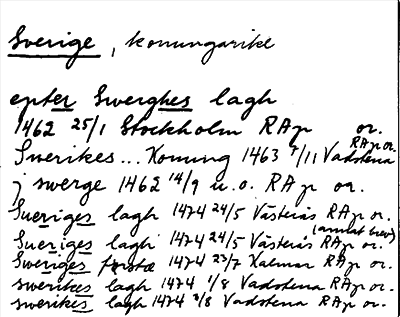 Sverige, konungarike
epter Swerghes lagh
1462 25/1 Stockholm RAp or.
Swerikes... Konung 1463 7/11 Vadstena RAp or.
j swerge 1462 14/9 u.o. RAp or.
Sueriges lagh 1474 24/5 Västerås RAp or.
Sueriges lagh 1474 24/5 Västerås RAp or. (annat brev)
Sweriges första 1474 23/7 Kalmar RAp or.
swerikes lagh 1474 1/8 Vadstena RAp or.
swerikes lagh 1474 3/8 Vadstena RAp or.